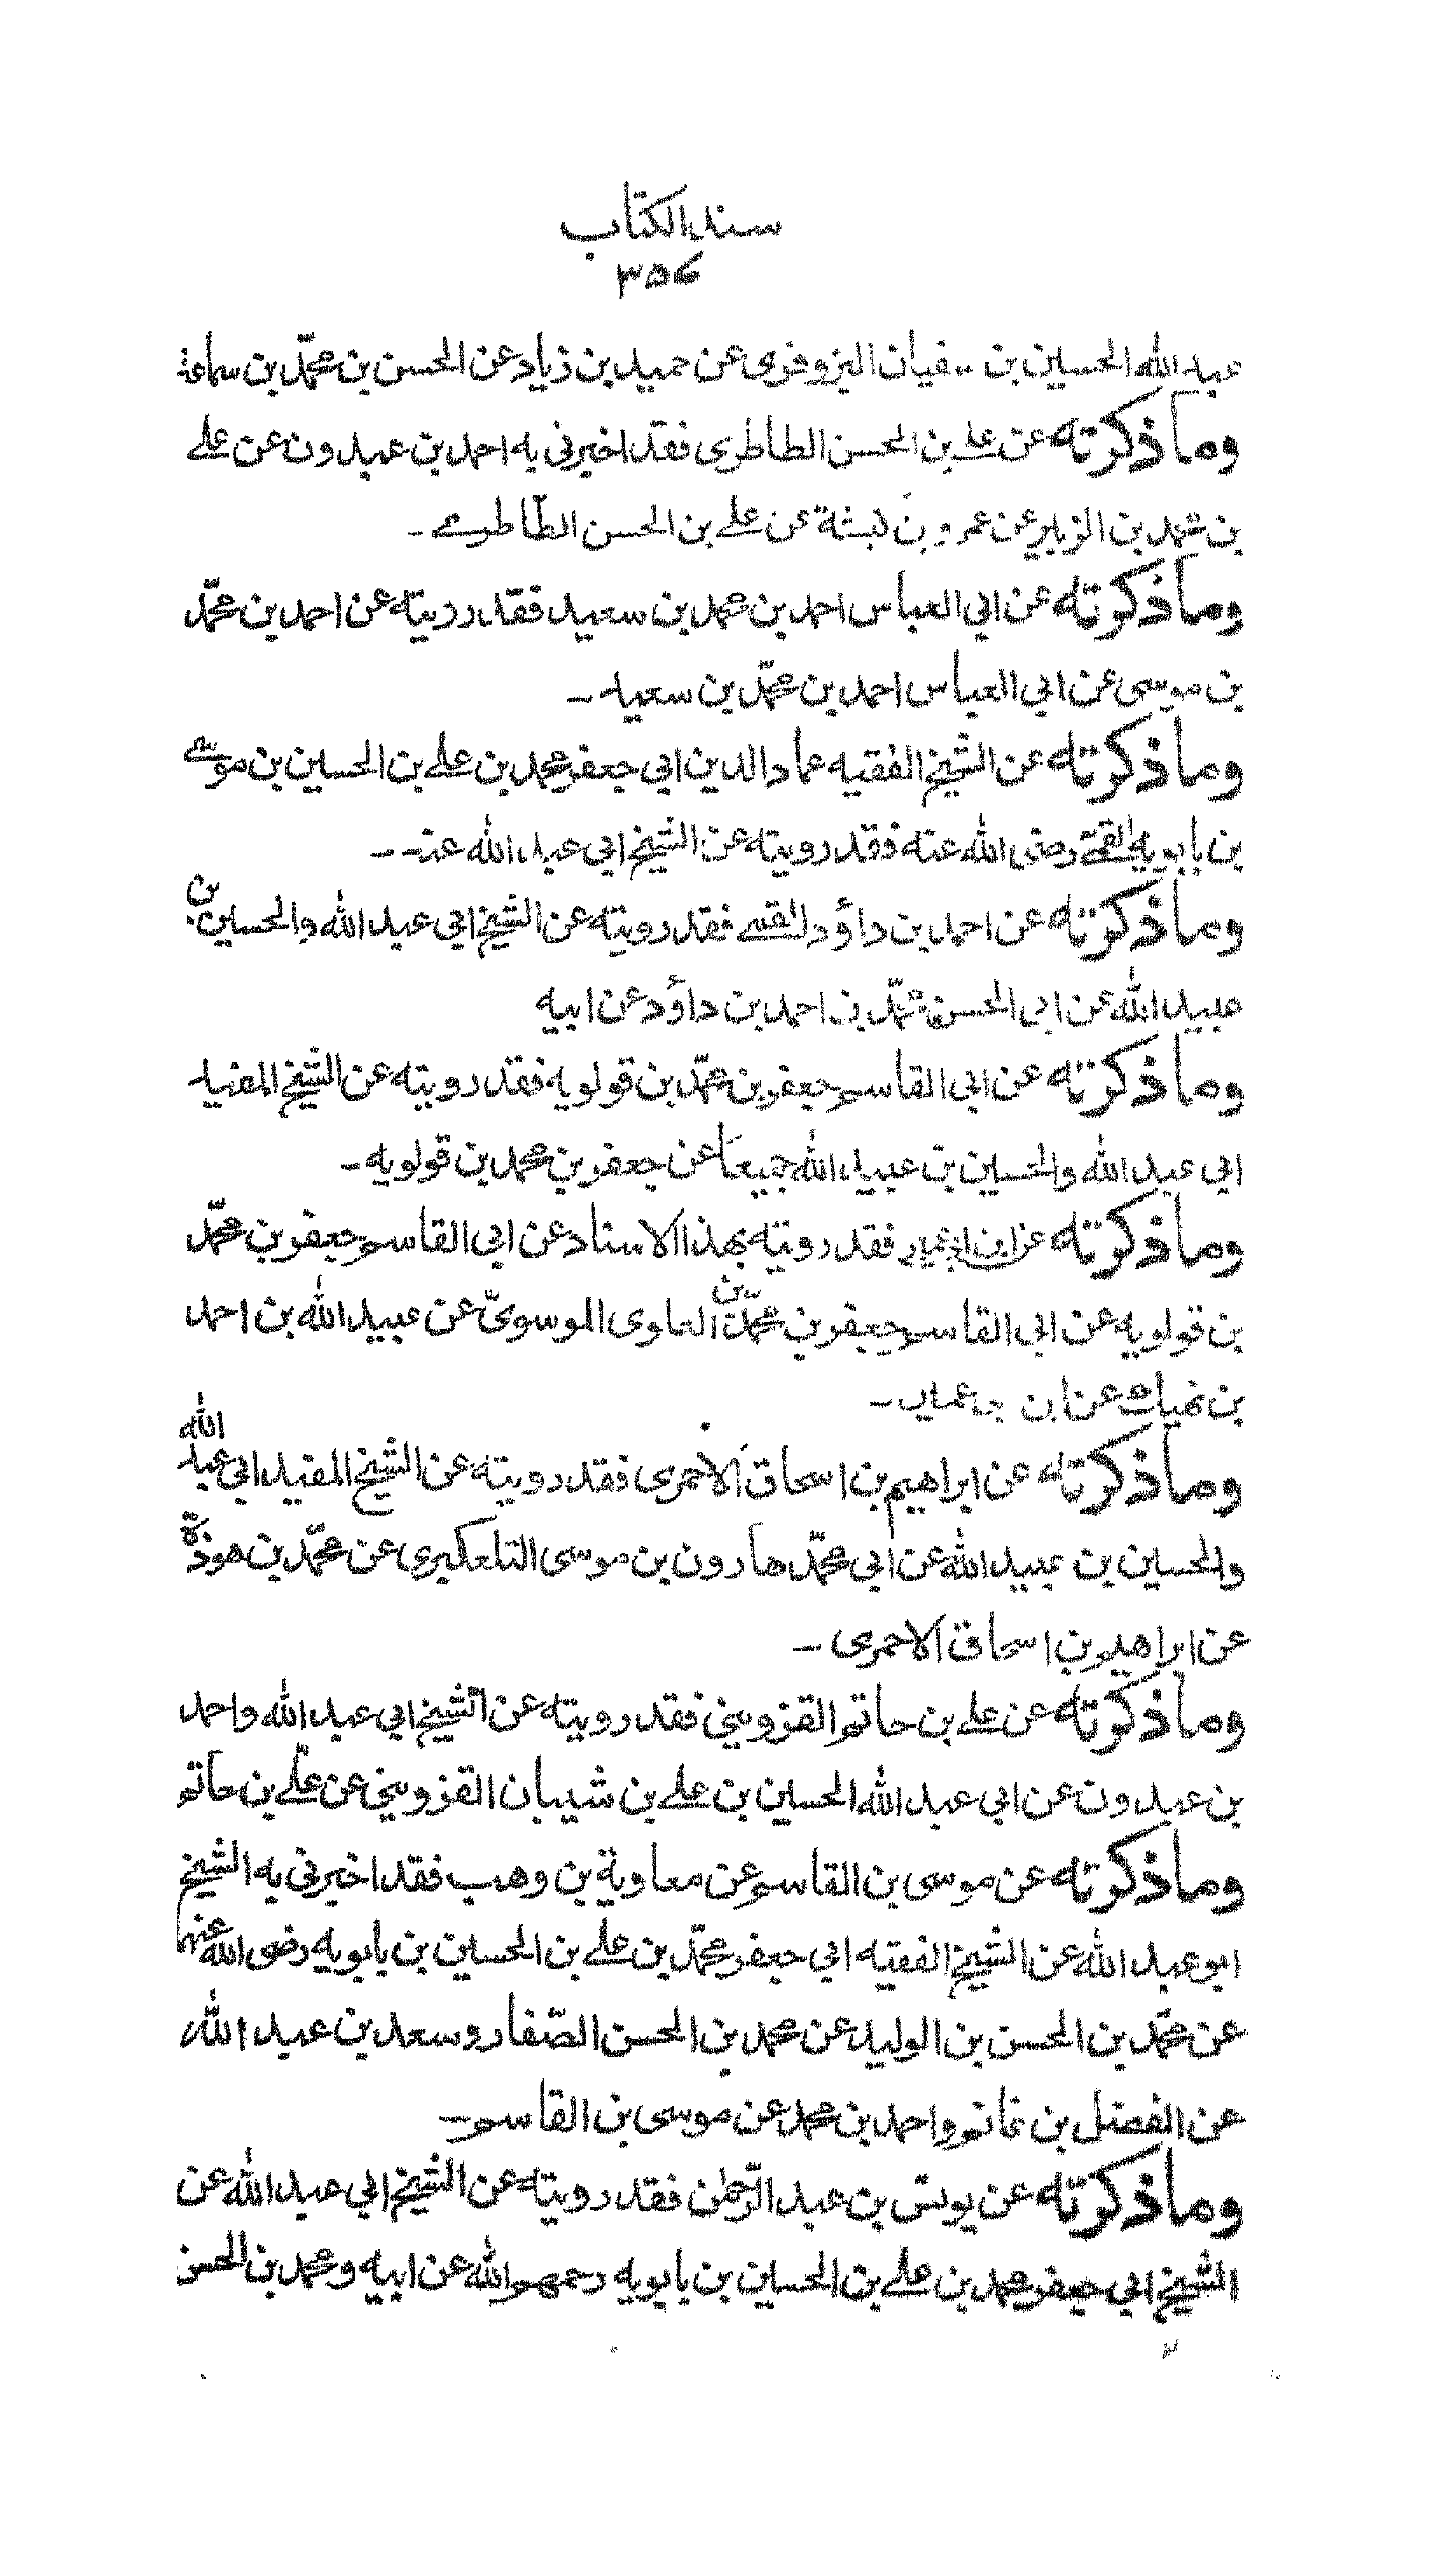 سند الكتاب
٣٥٦
عبد الله الحسين بن سفيان البزوفرى عن حميد بن زياد عن الحسن بن محمّد بن سماعة
وما ذكرته عن على بن الحسن الطاطرى فقد اخبرنى به احمد بن عبدون عن على
بن محمد بن الزبير عن عمرو بن كبشة عن على بن الحسن الطّاطرى ـ
وما ذكرته عن ابي العباس احمد بن محمد بن سعيد فقد رويته عن احمد بن محمّد
بن موسى عن ابي العباس احمد بن محمّد بن سعيد ـ
وما ذكرته عن الشيخ الفقيه عماد الدين ابي جعفر محمد بن على بن الحسين بن موسى
بن بابويه القمى رضى الله عنه فقد رويته عن الشيخ ابي عبد الله عنه ـ
وما ذكرته عن احمد بن داؤد القمى فقد رويته عن الشيخ ابي عبد الله والحسين بن
عبيد الله عن ابي الحسن محمّد بن احمد بن داؤد عن ابيه
وما ذكرته عن ابي القاسم جعفر بن محمّد بن قولويه فقد رويته عن الشيخ المفيد
ابي عبد الله والحسين بن عبيد الله جميعاً عن جعفر بن محمد بن قولويه ـ
وما ذكرته عن ابن ابي عمير فقد رويته بهذا الاسناد عن ابي القاسم جعفر بن محمّد
بن قولويه عن ابي القاسم جعفر بن محمّد بن العلوى الموسوىّ عن عبيد الله بن احمد
بن نهيك عن ابن عمير ـ
وما ذكرته عن ابراهيم بن اسحاق الاحمرى فقد رويته عن الشيخ المفيد ابي عبد الله
والحسين بن عبيد الله عن ابي محمّد هارون بن موسى التلعكبرى عن محمّد بن هوذة
عن ابراهيم بن اسحاق الاحمرى ـ
وما ذكرته عن على بن حاتم القزويني فقد رويته عن الشيخ ابي عبد الله واحمد
بن عبدون عن ابي عبد الله الحسين بن على بن شيبان القزويني عن على بن حاتم
وما ذكرته عن موسى بن القاسم عن معاوية بن وهب فقد اخبرنى به الشيخ
ابو عبد الله عن الشيخ الفقيه ابي جعفر محمّد بن على بن الحسين بن بابويه رضى الله عنهما
عن محمّد بن الحسن بن الوليد عن محمد بن الحسن الصّفار وسعد بن عبد الله
عن الفضل بن غانم واحمد بن محمد عن موسى بن القاسم ـ
وما ذكرته عن يونس بن عبد الرّحمٰن فقد رويته عن الشيخ ابي عبد الله عن
الشيخ ابي جعفر محمد بن على بن الحسين بن بابويه رحمهم الله عن ابيه ومحمد بن الحسن